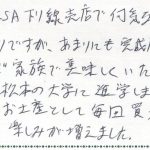 SA下り線売店で何気な
りですが、あまりにも
ご家族で美味しくいた
松本の大学に進学しま
お土産として毎回買
楽しみが増えました。